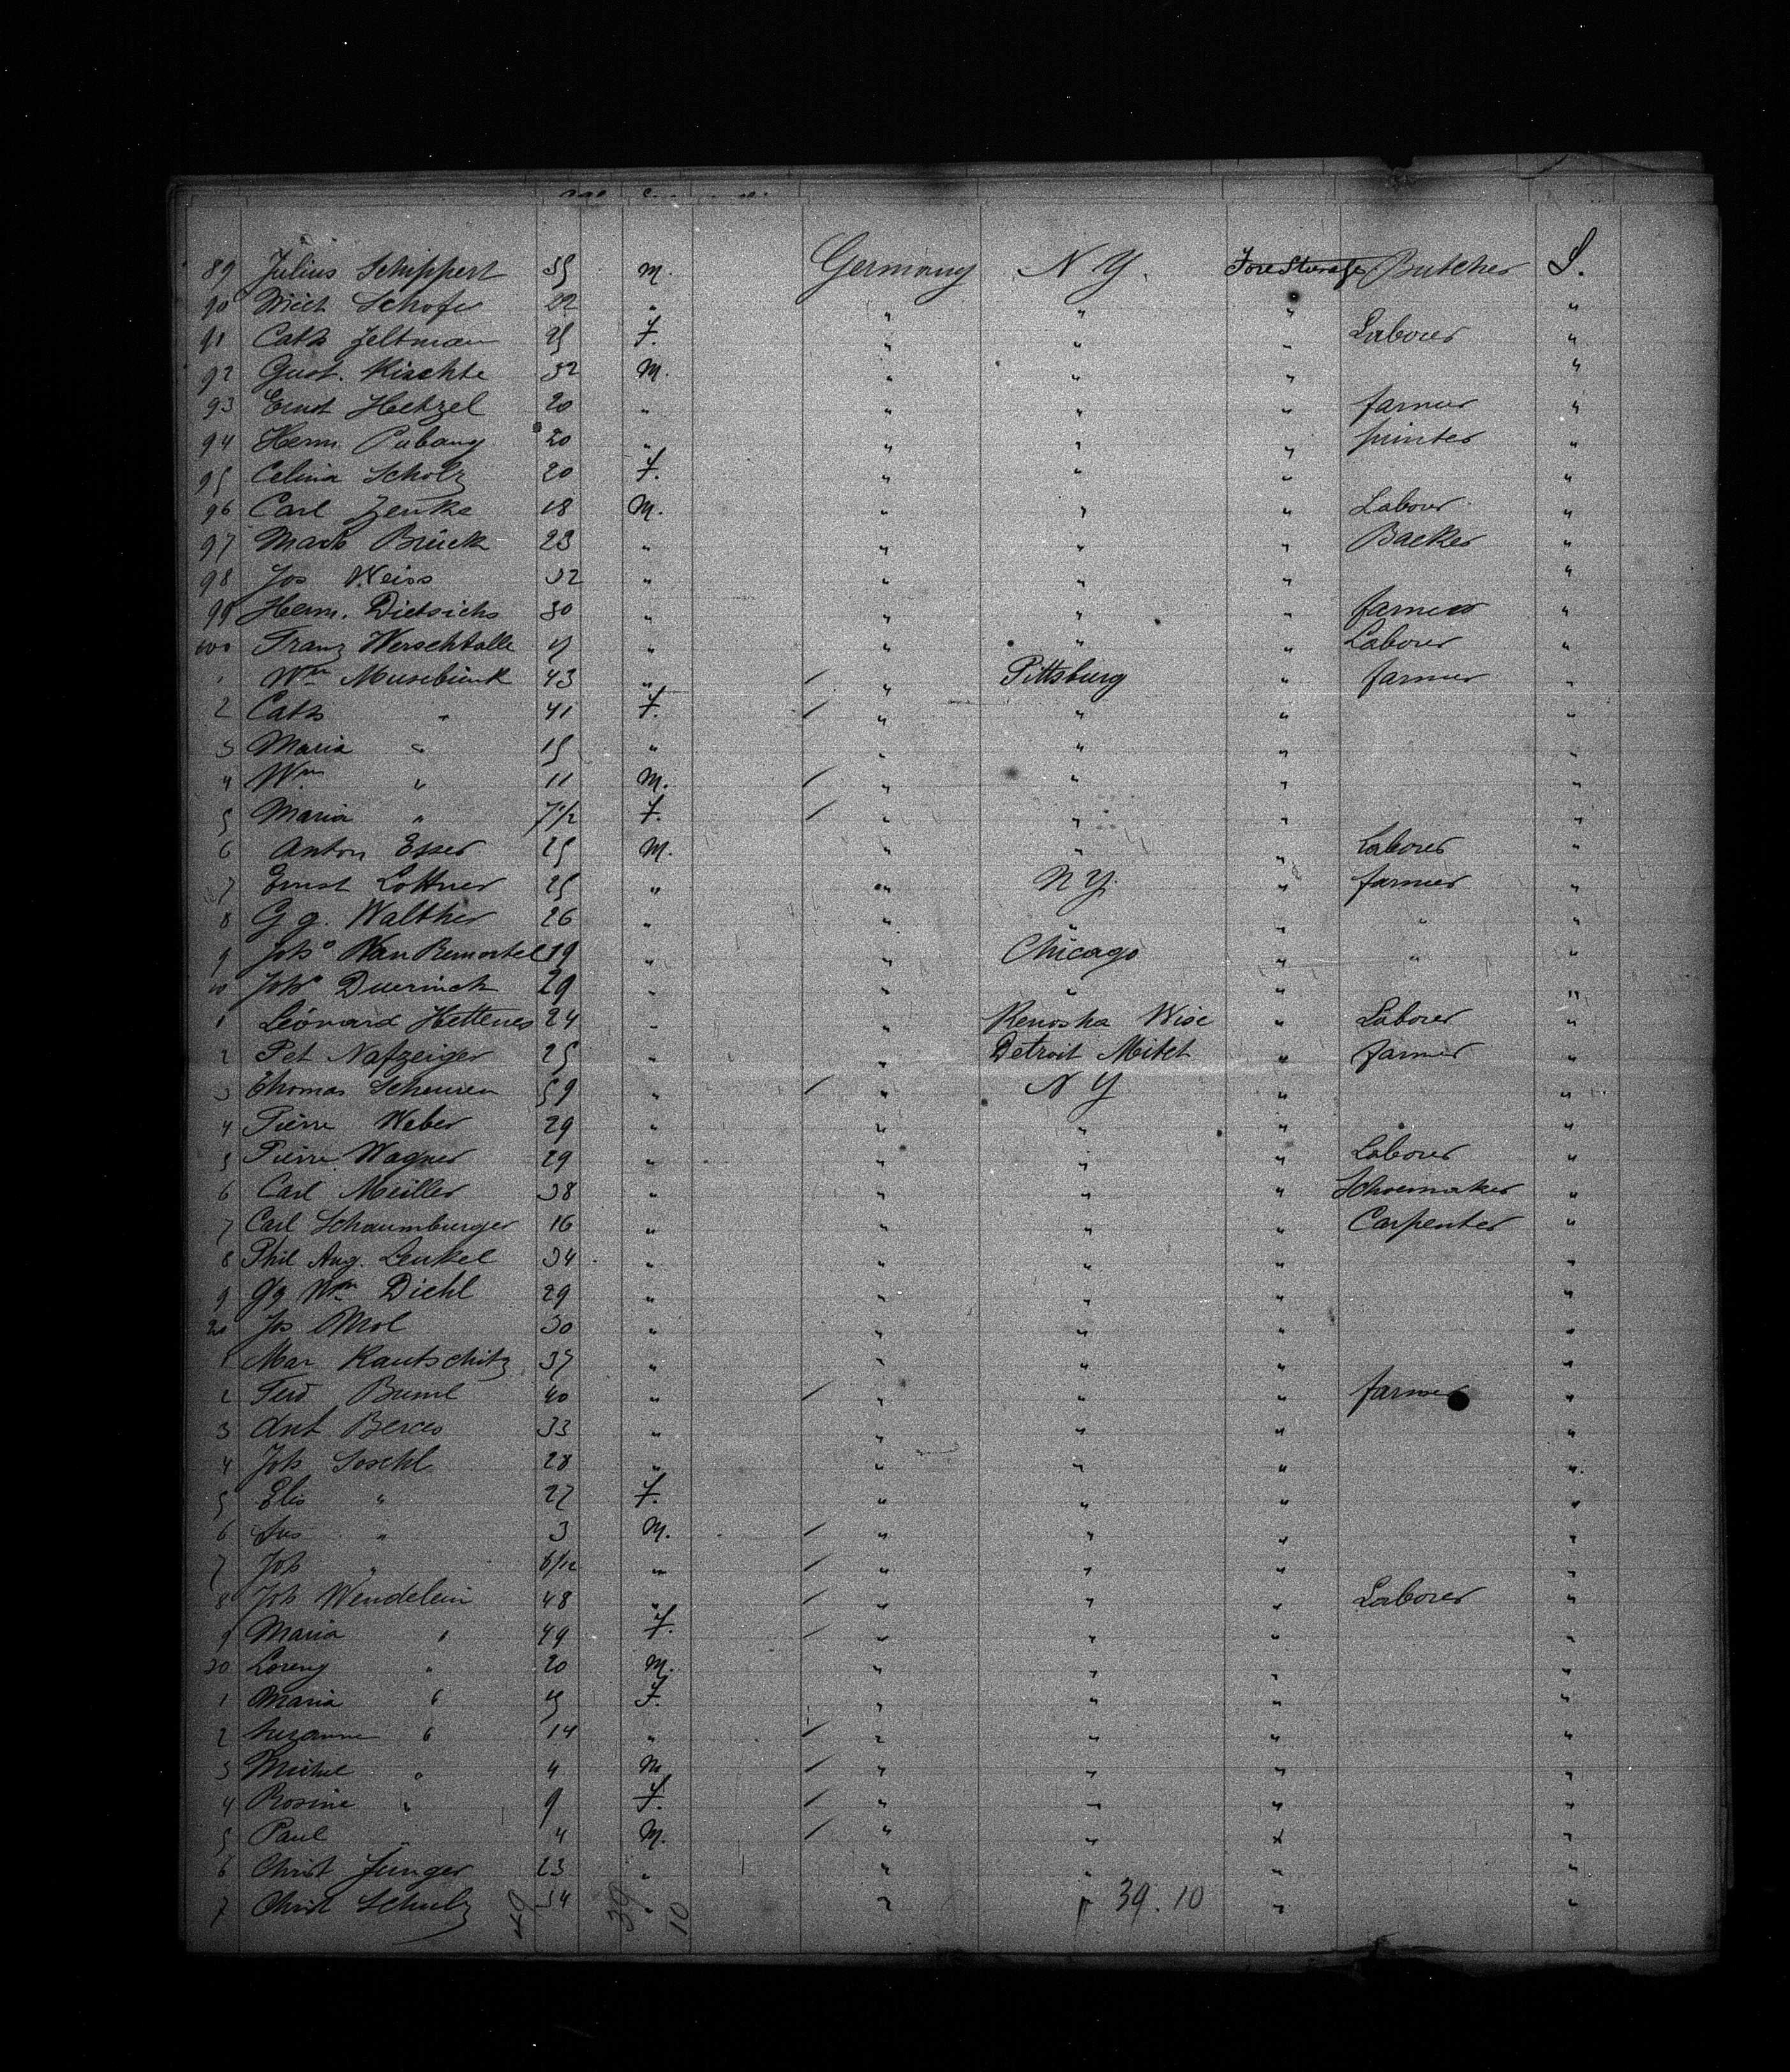 89 Julius Schippert 35 M. Germany N Y. Fore Steerage Butcher S.
90 Mich Schofer 22 " " " " "
91 Cath Zeltman 25 F. " " " Laborer "
92 Gust. Kischte 32 M. " " " "
93 Ernst Hetzel 20 " " " " farmer "
94 Herm. Pabang 20 " " " " printer "
95 Celina Scholz 20 F. " " " "
96 Carl Zenke 18 M. " " " Laborer "
97 Mark Brück 23 " " " " Backer "
98 Jos Weiss 32 " " " " "
99 Herm. Dietrichs 30 " " " " farmer "
600 Franz " " " " Laborer "
1 Wm Musebrink 43 " " Pittsburg " farmer "
2 Cath " 41 F. " " " "
3 Maria " 15 " " " " "
4 Wm " 11 M. " " " "
5 Maria " 7 1/2 F. " " " "
6 Anton Esser 25 M. " " " Laborer "
7 Ernst Lottner 25 " " N Y. " farmer "
8 Gg. Walther 26 " " " " " "
9 Joh° Van Remortel 19 " " Chicago " " "
10 Joh° Duerinck 29 " " " " "
1 Leonard Hettenes 24 " " Kenosha Wisc " Laborer "
2 Pet Nafzeiger 25 " " Detroit Mitch " farmer "
3 Thomas Scheuren 59 " " N Y " "
4 Pierre Weber 29 " " " " "
5 Pierre Wagner 29 " " " " Laborer "
6 Carl Meiller 38 " " " " Schoemaker "
7 Carl Schaumburger 16 " " " " Carpenter "
8 Phil Aug. Lenkel 34 " " " " "
9 Gg Wm Diehl 29 " " " " "
20 Jos Mol 30 " " " " "
1 Mar Kautschitz 37 " " " " "
2 Ferd Buml 40 " " " " farmer "
3 Ant Berces 33 " " " " "
4 Joh Soschl 28 " " " " "
5 Elis " 27 F. " " " "
6 " 3 M. " " " "
7 Joh " 6/12 " " " " "
8 Joh Wendelein 48 " " " " Laborer "
9 Maria " 49 F. " " " "
30 Lorenz " 20 M. " " " "
1 Maria " F. " " " "
2 Suzanne " 14 " " " " "
3 Michel " 4 M. " " " "
4 Rosine " 9 F. " " " "
5 Paul 4 M. " " " "
6 Christ Junger 23 " " " " "
7 Christ Schulz 34 " " " 39.10 " "
49 39 10